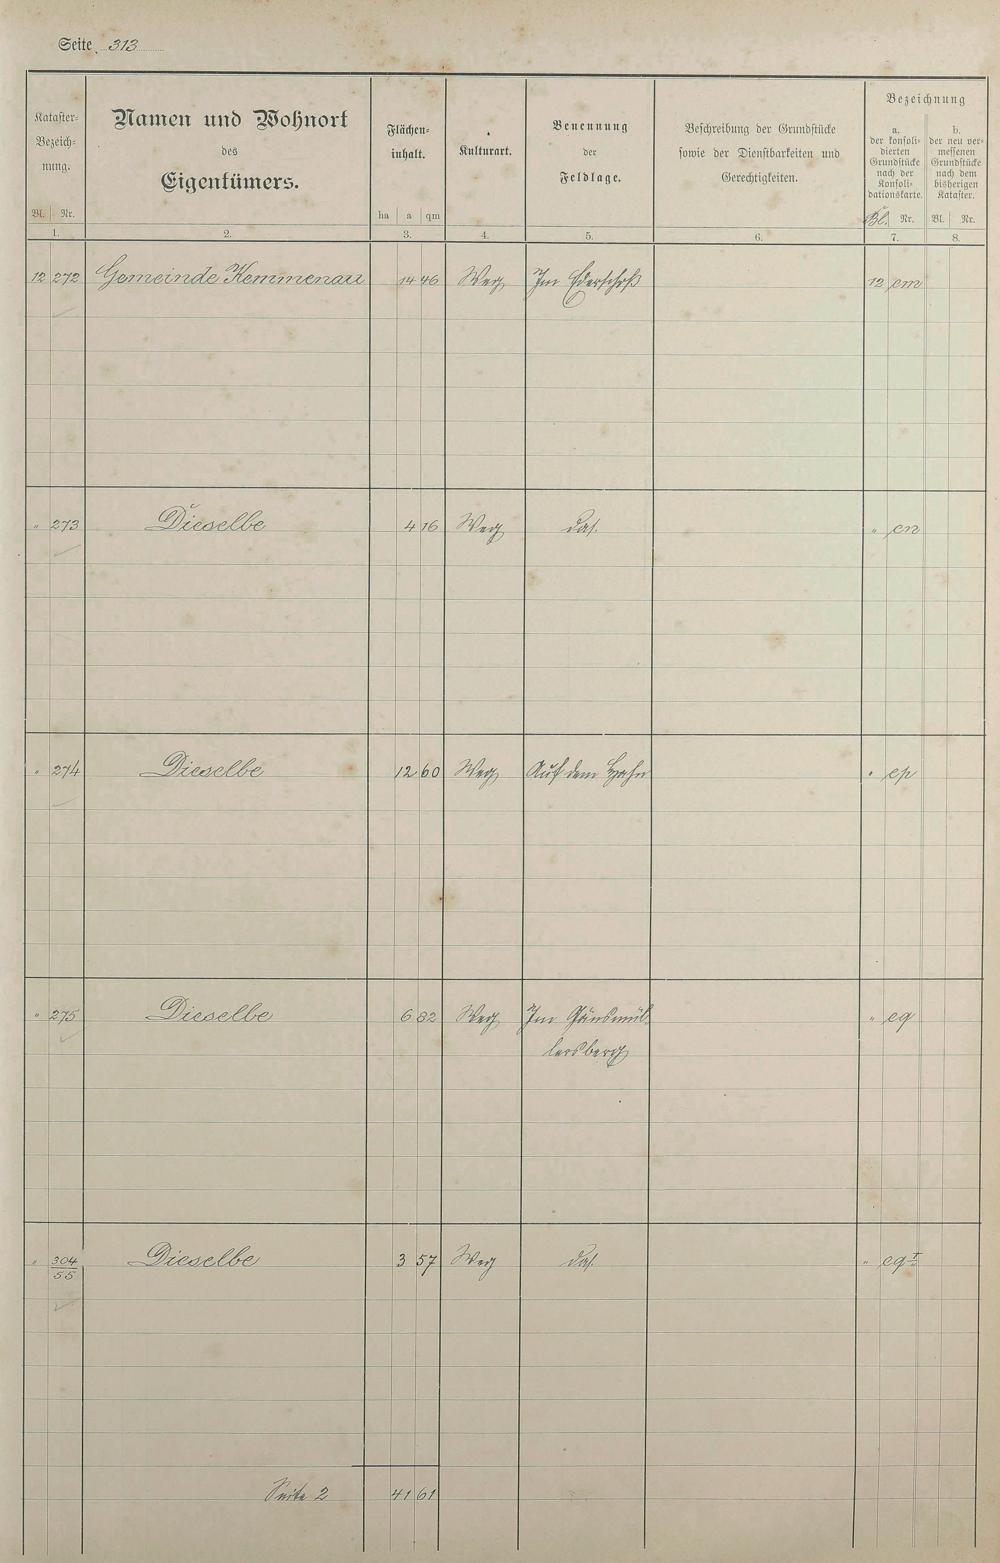 Seite 313
Kataster-
Bezeich-
nung.
Bl. Nr.
1.
Namen und Wohnort
des
Eigentümers.
2.
Flächen-
inhalt.
ha a qm
3.
Kulturart.
4.
Benennung
der
Feldlage.
5.
Beschreibung der Grundstücke
sowie der Dienstbarkeiten und
Gerechtigkeiten.
6.
Bezeichnung
a.
der konsoli-
dierten
Grundstücke
nach der
Konsoli-
dationskarte.
Bl. Nr.
7.
b.
der neu ver-
messenen
Grundstücke
nach dem
bisherigen
Kataster.
Bl. Nr.
8.
12 272 Gemeinde Kemmenau 14 46 Weg Im 12 cm
" 273 Dieselbe 4 16 Weg das. " cn
" 274 Dieselbe 12 60 Weg Auf dem Hahn " cp
" 275 Dieselbe 6 82 Weg Im Gänsmül-
lersberg " cq
" 304/55 Dieselbe 3 57 Weg das. " cq I
Seite 2 41 61